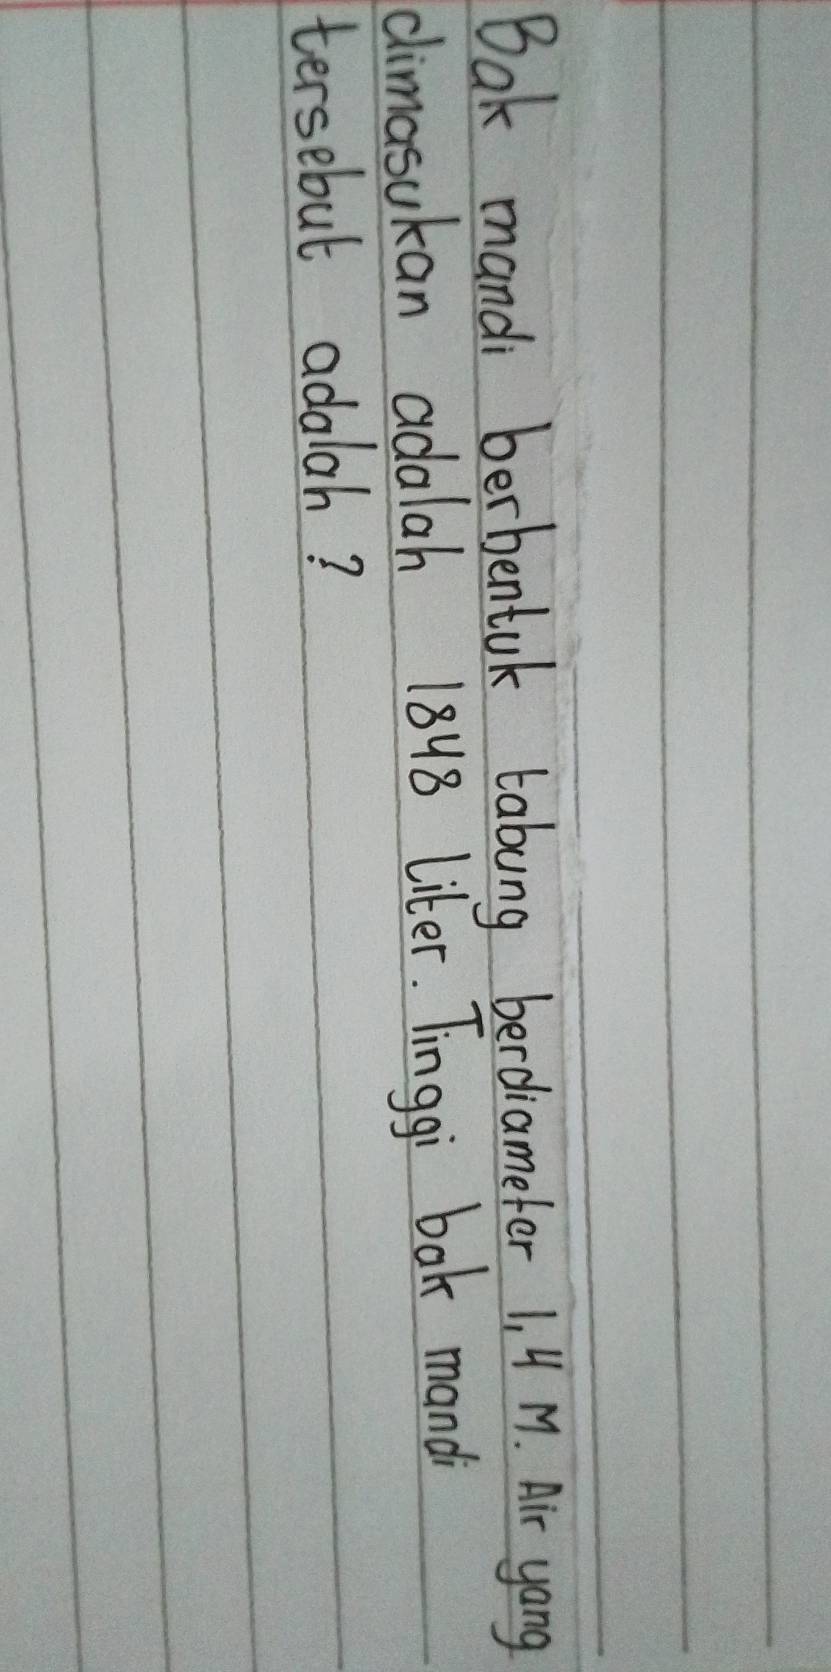 Bak mandi berbentuk tabung berdiameter 1,4 M. Air yang
dimasukan adalah 1848 Liter. Tinggi bak mandi
tersebut adalah ?